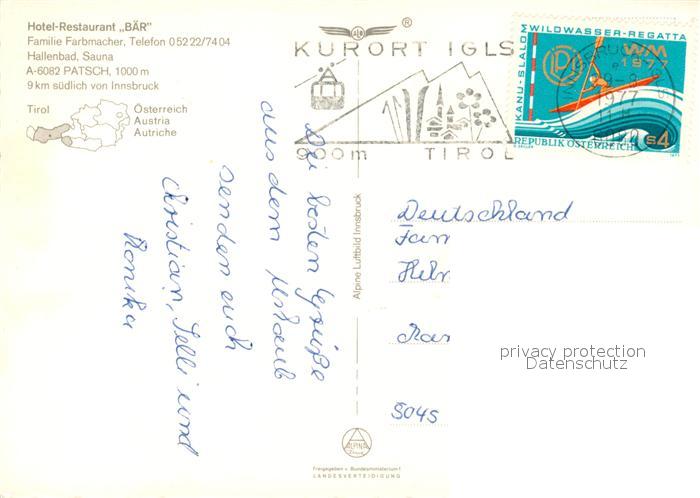 Hotel-Restaurant „BÄR"
Familie Farbmacher, Telefon 0 52 22/74 04
Hallenbad, Sauna
A-6082 PATSCH, 1000 m
9 km südlich von Innsbruck
Tirol
Österreich
Austria
Autriche
®
KURORT IGLS
900m TIROL
KANU-SLALOM
WILDWASSER-REGATTA
WM
1977
REPUBLIK ÖSTERREICH
S4
1977
Die besten Grüße
aus dem Urlaub
senden euch
Christian, Selli und
Monika
Alpine Luftbild Innsbruck
ALPINA
Freigegeben v. Bundesministerium f.
LANDESVERTEIDIGUNG
Deutschland
Fam
Helm
5045
privacy protection
Datenschutz